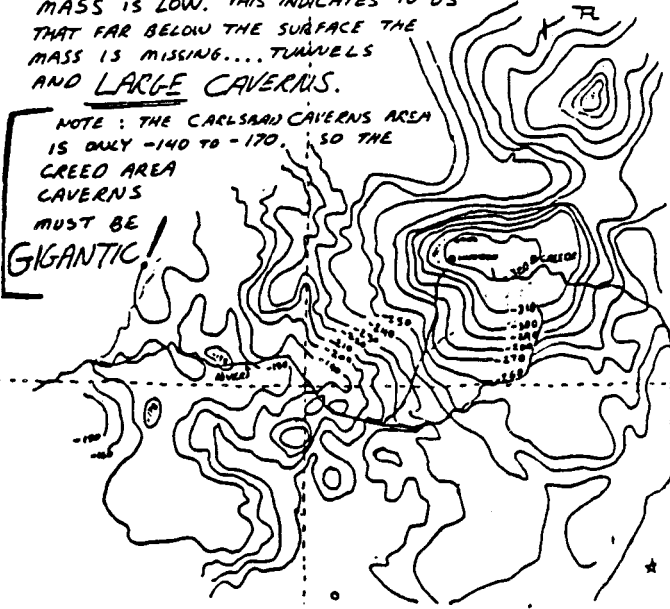 MASS IS LOW. THIS INDICATES TO US
THAT FAR BELOW THE SURFACE THE
MASS IS MISSING.... TUNNELS
AND LARGE CAVERNS.
NOTE : THE CARLSBAD CAVERNS AREA
IS ONLY -140 TO -170. SO THE
CREED AREA
CAVERNS
MUST BE
GIGANTIC!
-310
-300
-270
-260
-250
-240
-230
-210
-200
-190
-180